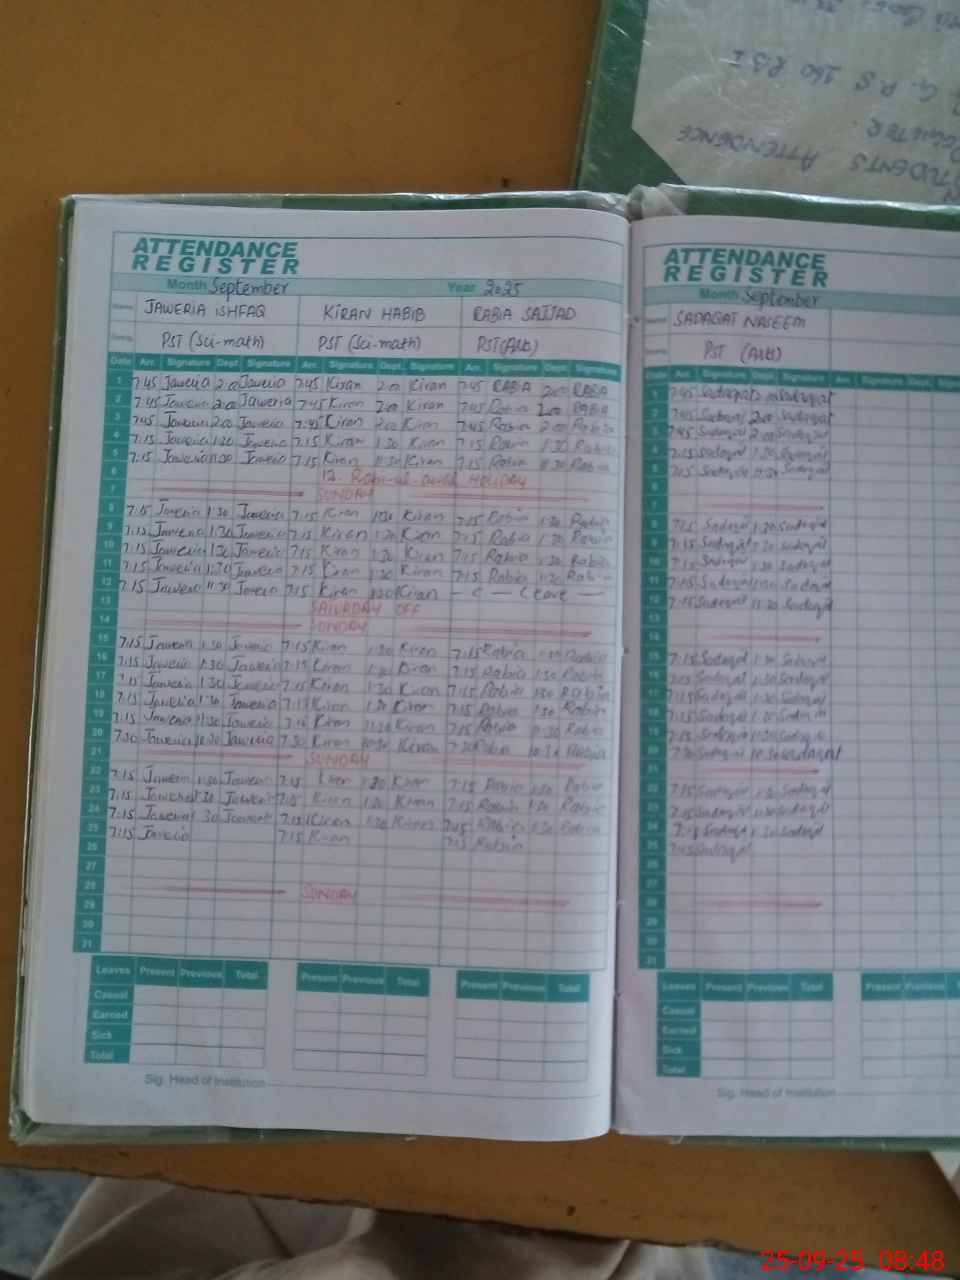 STUDENTS ATTENDENCE
REGISTER.
G. P.S 260 R.B I
ATTENDANCE
REGISTER
Month September Year 2025
Name JAWERIA ISHFAQ KIRAN HABIB RABIA SAJJAD
PST (Sci-math) PST (Sci-math) PST(Arts)
Date Arr. Signature Dept. Signature Arr. Signature Dept. Signature Arr. Signature Dept. Signature
1 7:45 Jaweria 2:00 Jaweria 7:45 Kiran 2:00 Kiran 7:45 RABIA 2:00 RABIA
2 7:45 Jaweria 2:00 Jaweria 7:45 Kiran 2:00 Kiran 7:45 Rabia 2:00 RABIA
3 7:45 Jaweria 2:00 Jaweria 7:45 Kiran 2:00 Kiran 7:45 Rabia 2:00 Rabia
4 7:15 Jaweria 1:30 Jaweria 7:15 Kiran 1:30 Kiran 7:15 Rabia 1:30 Rabia
5 7:15 Jaweria 11:30 Jaweria 7:15 Kiran 11:30 Kiran 7:15 Rabia 11:30 Rabia
6 12- Rabi-ul-awal HOLIDAY
7 SUNDAY
8 7:15 Jaweria 1:30 Jaweria 7:15 Kiran 1:30 Kiran 7:15 Rabia 1:30 Rabia
9 7:15 Jaweria 1:30 Jaweria 7:15 Kiran 1:30 Kiran 7:15 Rabia 1:30 Rabia
10 7:15 Jaweria 1:30 Jaweria 7:15 Kiran 1:30 Kiran 7:15 Rabia 1:30 Rabia
11 7:15 Jaweria 1:30 Jaweria 7:15 Kiran 1:30 Kiran 7:15 Rabia 1:30 Rabia
12 7:15 Jaweria 11:30 Jaweria 7:15 Kiran Kiran — C — Leave —
13 SATURDAY OFF
14 SUNDAY
15 7:15 Jaweria 1:30 Jaweria 7:15 Kiran 1:30 Kiran 7:15 Rabia Rabia
16 7:15 Jaweria 1:30 Jaweria 7:15 Kiran 1:30 Kiran 7:15 Rabia 1:30 Rabia
17 7:15 Jaweria 1:30 Jaweria 7:15 Kiran 1:30 Kiran 7:15 Rabia 1:30 Rabia
18 7:15 Jaweria 1:30 Jaweria 7:15 Kiran 1:30 Kiran 7:15 Rabia 1:30 Rabia
19 7:15 Jaweria 11:30 Jaweria 7:15 Kiran 11:30 Kiran 7:15 Rabia 11:30 Rabia
20 7:30 Jaweria 10:30 Jaweria 7:30 Kiran 10:30 Kiran 7:30 Rabia 10:30 Rabia
21 SUNDAY
22 7:15 Jaweria 1:30 Jaweria 7:15 Kiran 1:30 Kiran 7:15 Rabia 1:30 Rabia
23 7:15 Jaweria 1:30 Jaweria 7:15 Kiran 1:30 Kiran 7:15 Rabia 1:30 Rabia
24 7:15 Jaweria 1:30 Jaweria 7:15 Kiran 1:30 Kiran 7:45 Rabia 1:30 Rabia
25 7:15 Jaweria 7:15 Kiran 7:15 Rabia
26
27
28 SUNDAY
29
30
31
Leaves Present Previous Total Present Previous Total Present Previous Total
Casual
Earned
Sick
Total
Sig. Head of Institution
ATTENDANCE
REGISTER
Month September
Name SADAQAT NASEEM
PST (Arts)
Date Arr. Signature Dept. Signature Arr. Signature Dept.
1 7:45 Sadaqat 2:00 Sadaqat
2 7:45 Sadaqat 2:00 Sadaqat
3 7:45 Sadaqat 2:00 Sadaqat
4 7:15 Sadaqat 1:30 Sadaqat
5 7:15 Sadaqat 11:30 Sadaqat
6
7
8 7:15 Sadaqat 1:30 Sadaqat
9 7:15 Sadaqat 1:30 Sadaqat
10 7:15 Sadaqat 1:30 Sadaqat
11 7:15 Sadaqat 1:30 Sadaqat
12 7:15 Sadaqat 11:30 Sadaqat
13
14
15 7:15 Sadaqat 1:30 Sadaqat
16 7:15 Sadaqat 1:30 Sadaqat
17 7:15 Sadaqat 1:30 Sadaqat
18 7:15 Sadaqat 1:30 Sadaqat
19 7:15 Sadaqat Sadaqat
20 7:30 Sadaqat 10:30 Sadaqat
21
22 7:15 Sadaqat 1:30 Sadaqat
23 7:15 Sadaqat 1:30 Sadaqat
24 7:15 Sadaqat 1:30 Sadaqat
25 7:15 Sadaqat
26
27
28
29
30
31
Leaves Present Previous Total Present Previous
Casual
Earned
Sick
Total
Sig. Head of Institution
25-09-25 08:48